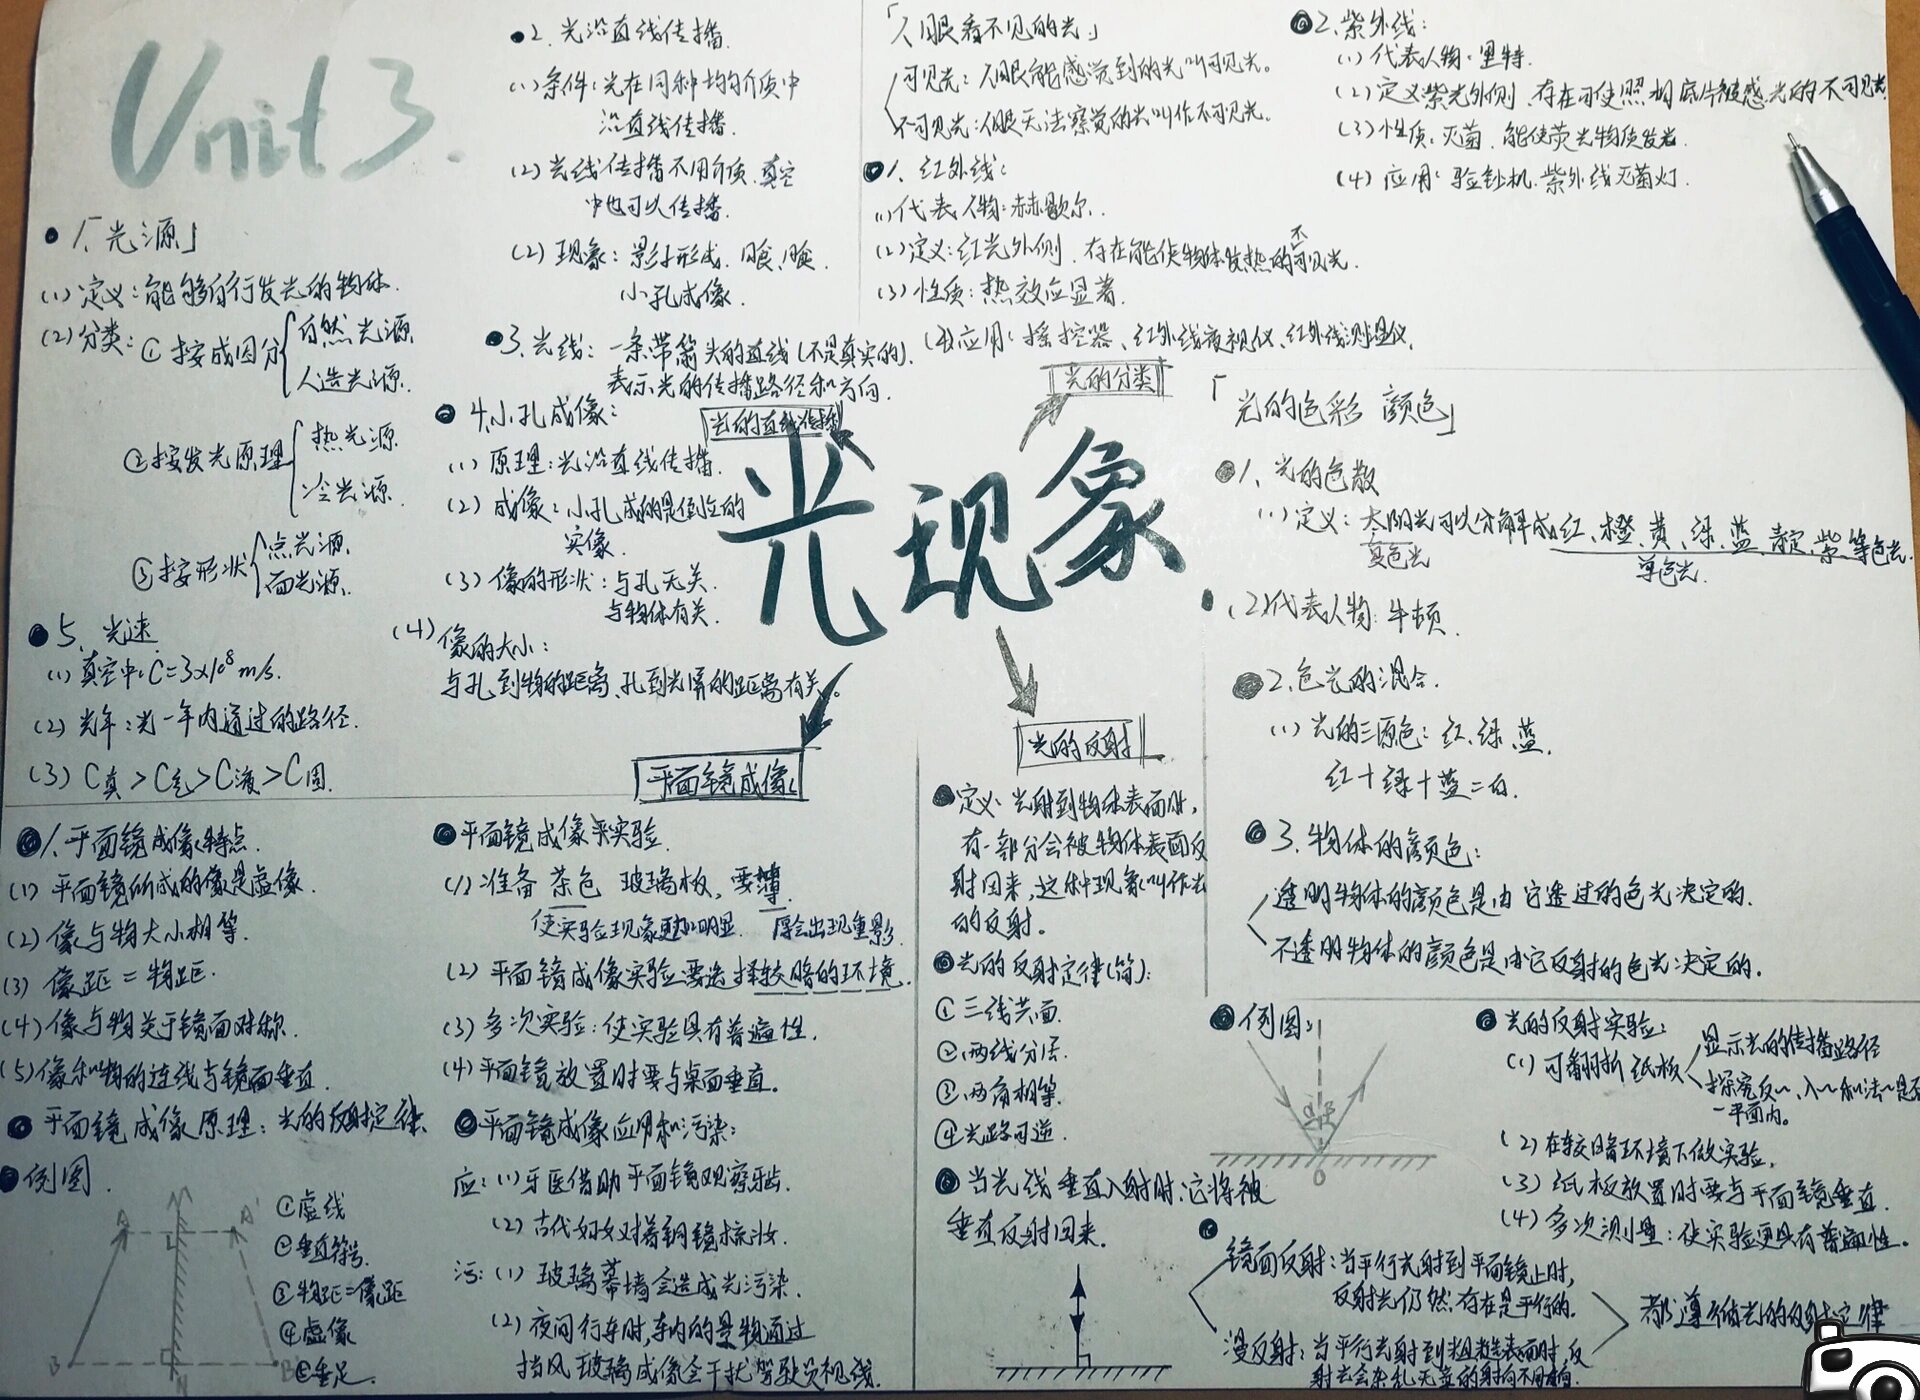 Unit 3.
1、「光源」
(1) 定义：能够自行发光的物体.
(2) 分类：① 按成因分
自然光源.
人造光源.
②按发光原理
热光源.
冷光源.
③按形状
点光源.
面光源.
5、光速
(1) 真空中：C=3×10⁸ m/s.
(2) 光年：光一年内通过的路径.
(3) C真>C气>C液>C固.
2. 光沿直线传播.
(1) 条件：光在同种均匀介质中
沿直线传播.
(2) 光线传播不用介质、真空
中也可以传播.
(2) 现象：影子形成、日食、月食、
小孔成像.
3、光线：一条带箭头的直线(不是真实的).
表示光的传播路径和方向.
4、小孔成像：
(1) 原理：光沿直线传播.
(2) 成像：小孔成的是倒立的
实像.
(3) 像的形状：与孔无关.
与物体有关.
(4) 像的大小：
与孔到物的距离、孔到光屏的距离有关。
光的直线传播
「人眼看不见的光」
可见光：人眼能感觉到的光叫可见光。
不可见光：人眼无法察觉的光叫作不可见光.
1、红外线：
(1)代表人物：赫歇尔.
(2)定义：红光外侧、存在能使物体发热的不可见光.
(3) 性质：热效应显著.
(4)应用：摇控器、红外线夜视仪、红外线测温仪.
2、紫外线：
(1) 代表人物：里特.
(2) 定义紫光外侧、存在可使照相底片被感光的不可见光
(3) 性质：灭菌、能使荧光物质发光.
(4) 应用：验钞机、紫外线灭菌灯.
光的分类
光现象
「光的色彩 颜色」
1、光的色散
(1) 定义：太阳光可以分解成红、橙、黄、绿、蓝、靛、紫等色光.
复色光
单色光.
(2)代表人物：牛顿.
2、色光的混合.
(1) 光的三原色：红、绿、蓝.
红+绿+蓝=白.
3、物体的颜色：
透明物体的颜色是由它透过的色光决定的.
不透明物体的颜色是由它反射的色光决定的.
平面镜成像
1、平面镜成像特点.
(1) 平面镜所成的像是虚像.
(2) 像与物大小相等.
(3) 像距=物距.
(4) 像与物关于镜面对称.
(5) 像和物的连线与镜面垂直.
平面镜成像原理：光的反射定律.
例图.
A
N
A'
B
N
B'
①虚线
②垂直符号.
③物距=像距
④虚像
⑤垂足.
平面镜成像实验.
(1) 准备 茶色 玻璃板，要薄.
使实验现象更加明显 厚会出现重影.
(2) 平面镜成像实验要选择较暗的环境.
(3) 多次实验：使实验具有普遍性.
(4) 平面镜放置时要与桌面垂直。
平面镜成像应用和污染：
应：(1) 牙医借助平面镜观察牙齿.
(2) 古代妇女对着铜镜梳妆.
污：(1) 玻璃幕墙会造成光污染.
(2) 夜间行车时，车内的景物通过
挡风玻璃成像会干扰驾驶员视线.
光的反射
定义：光射到物体表面时，
有一部分会被物体表面反
射回来，这种现象叫作光
的反射。
光的反射定律(简)：
① 三线共面.
②、两线分居.
③、两角相等.
④ 光路可逆.
当光线垂直入射时，它将被
垂直反射回来.
例图：
α β
O
光的反射实验：
(1) 可翻折纸板
显示光的传播路径
探究反~、入~和法~是否
一平面内。
(2) 在较暗环境下做实验.
(3) 纸板放置时要与平面镜垂直.
(4) 多次测量：使实验更具有普遍性。
镜面反射：当平行光射到平面镜上时，
反射光仍然存在是平行的.
漫反射：当平行光射到粗糙表面时，反
射光会杂乱无章的射向不同方向.
都遵循光的反射定律